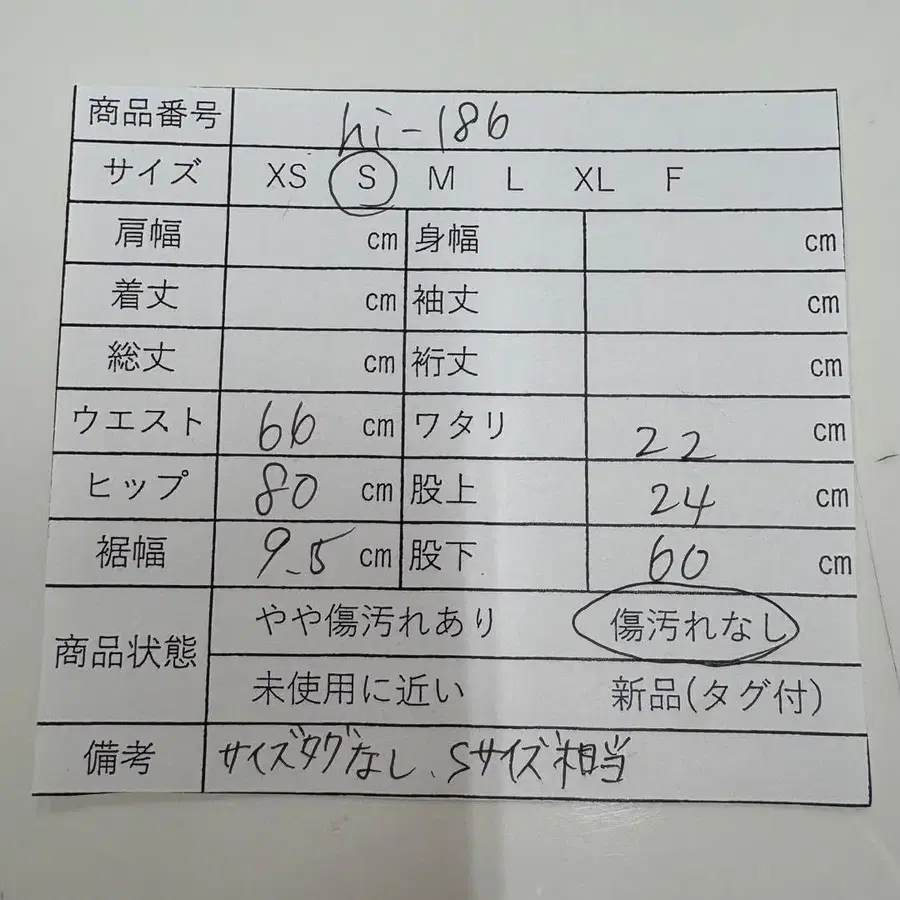 商品番号 hi-186
サイズ XS S M L XL F
肩幅 cm 身幅 cm
着丈 cm 袖丈 cm
総丈 cm 裄丈 cm
ウエスト 66 cm ワタリ 22 cm
ヒップ 80 cm 股上 24 cm
裾幅 9.5 cm 股下 60 cm
商品状態 やや傷汚れあり 傷汚れなし
未使用に近い 新品(タグ付)
備考 サイズタグなし、Sサイズ相当